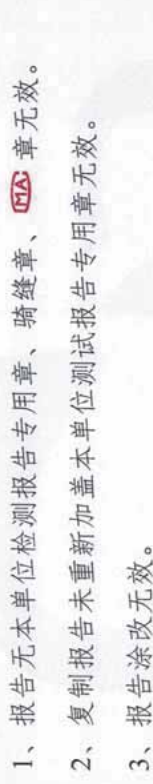 1、报告无本单位检测报告专用章、骑缝章、MA 章无效。
2、复制报告未重新加盖本单位测试报告专用章无效。
3、报告涂改无效。